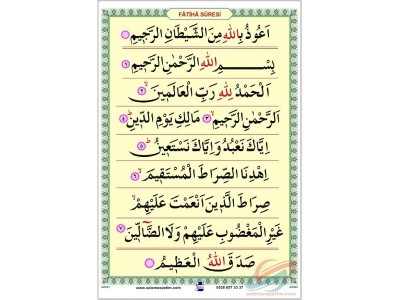 FÂTİHÂ SÛRESİ
اَعُوذُ بِاللهِ مِنَ الشَّيْطَانِ الرَّجِيمِ
بِسْمِ اللهِ الرَّحْمٰنِ الرَّحِيمِ ١
اَلْحَمْدُ لِلّٰهِ رَبِّ الْعَالَمِينَ ٢
اَلرَّحْمٰنِ الرَّحِيمِ ٣ مَالِكِ يَوْمِ الدِّينِ ٤
اِيَّاكَ نَعْبُدُ وَاِيَّاكَ نَسْتَعِينُ ٥
اِهْدِنَا الصِّرَاطَ الْمُسْتَقِيمَ ٦
صِرَاطَ الَّذِينَ اَنْعَمْتَ عَلَيْهِمْ
غَيْرِ الْمَغْضُوبِ عَلَيْهِمْ وَلَا الضَّالِّينَ ٧
صَدَقَ اللهُ الْعَظِيمُ